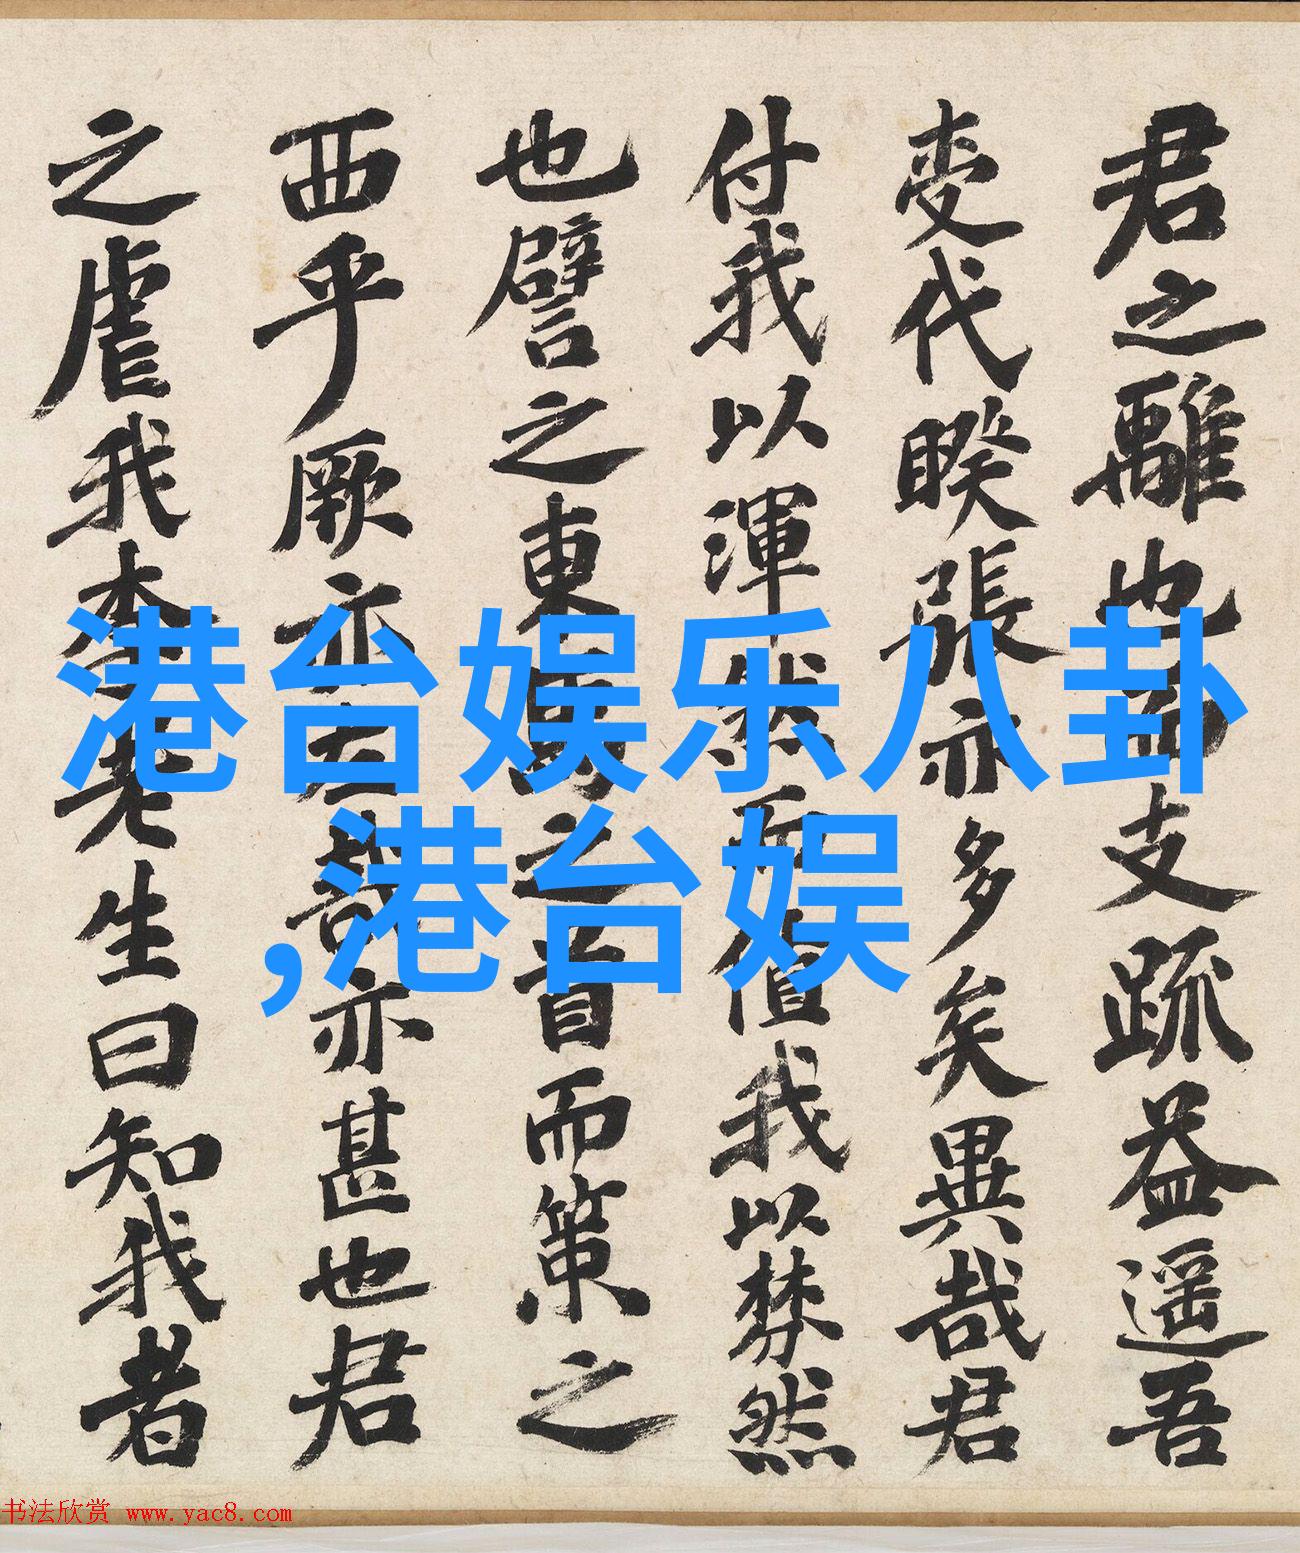 君之離也而支疏益遥吾
代睽張亦多矣異哉君
付我以渾然而值我以棼然
也譬之東馬之首而策之
西乎厥亦左哉亦甚也君
之虐我李老生曰知我者
港台娱乐八卦
,港台娱
书法欣赏 www.yac8.com